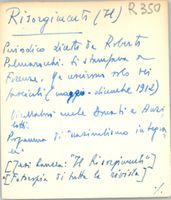 Risorgimento (Il) R350
Periodico diretto da Roberto
Palmarocchi. Si stampava a
Firenze. Ne uscirono solo sei
fascicoli (maggio-dicembre 1912)
anche Donati e
Programma di "nazionalismo integra
le"
["Il Risorgimento"]
[Fotocopia di tutta la rivista]
%